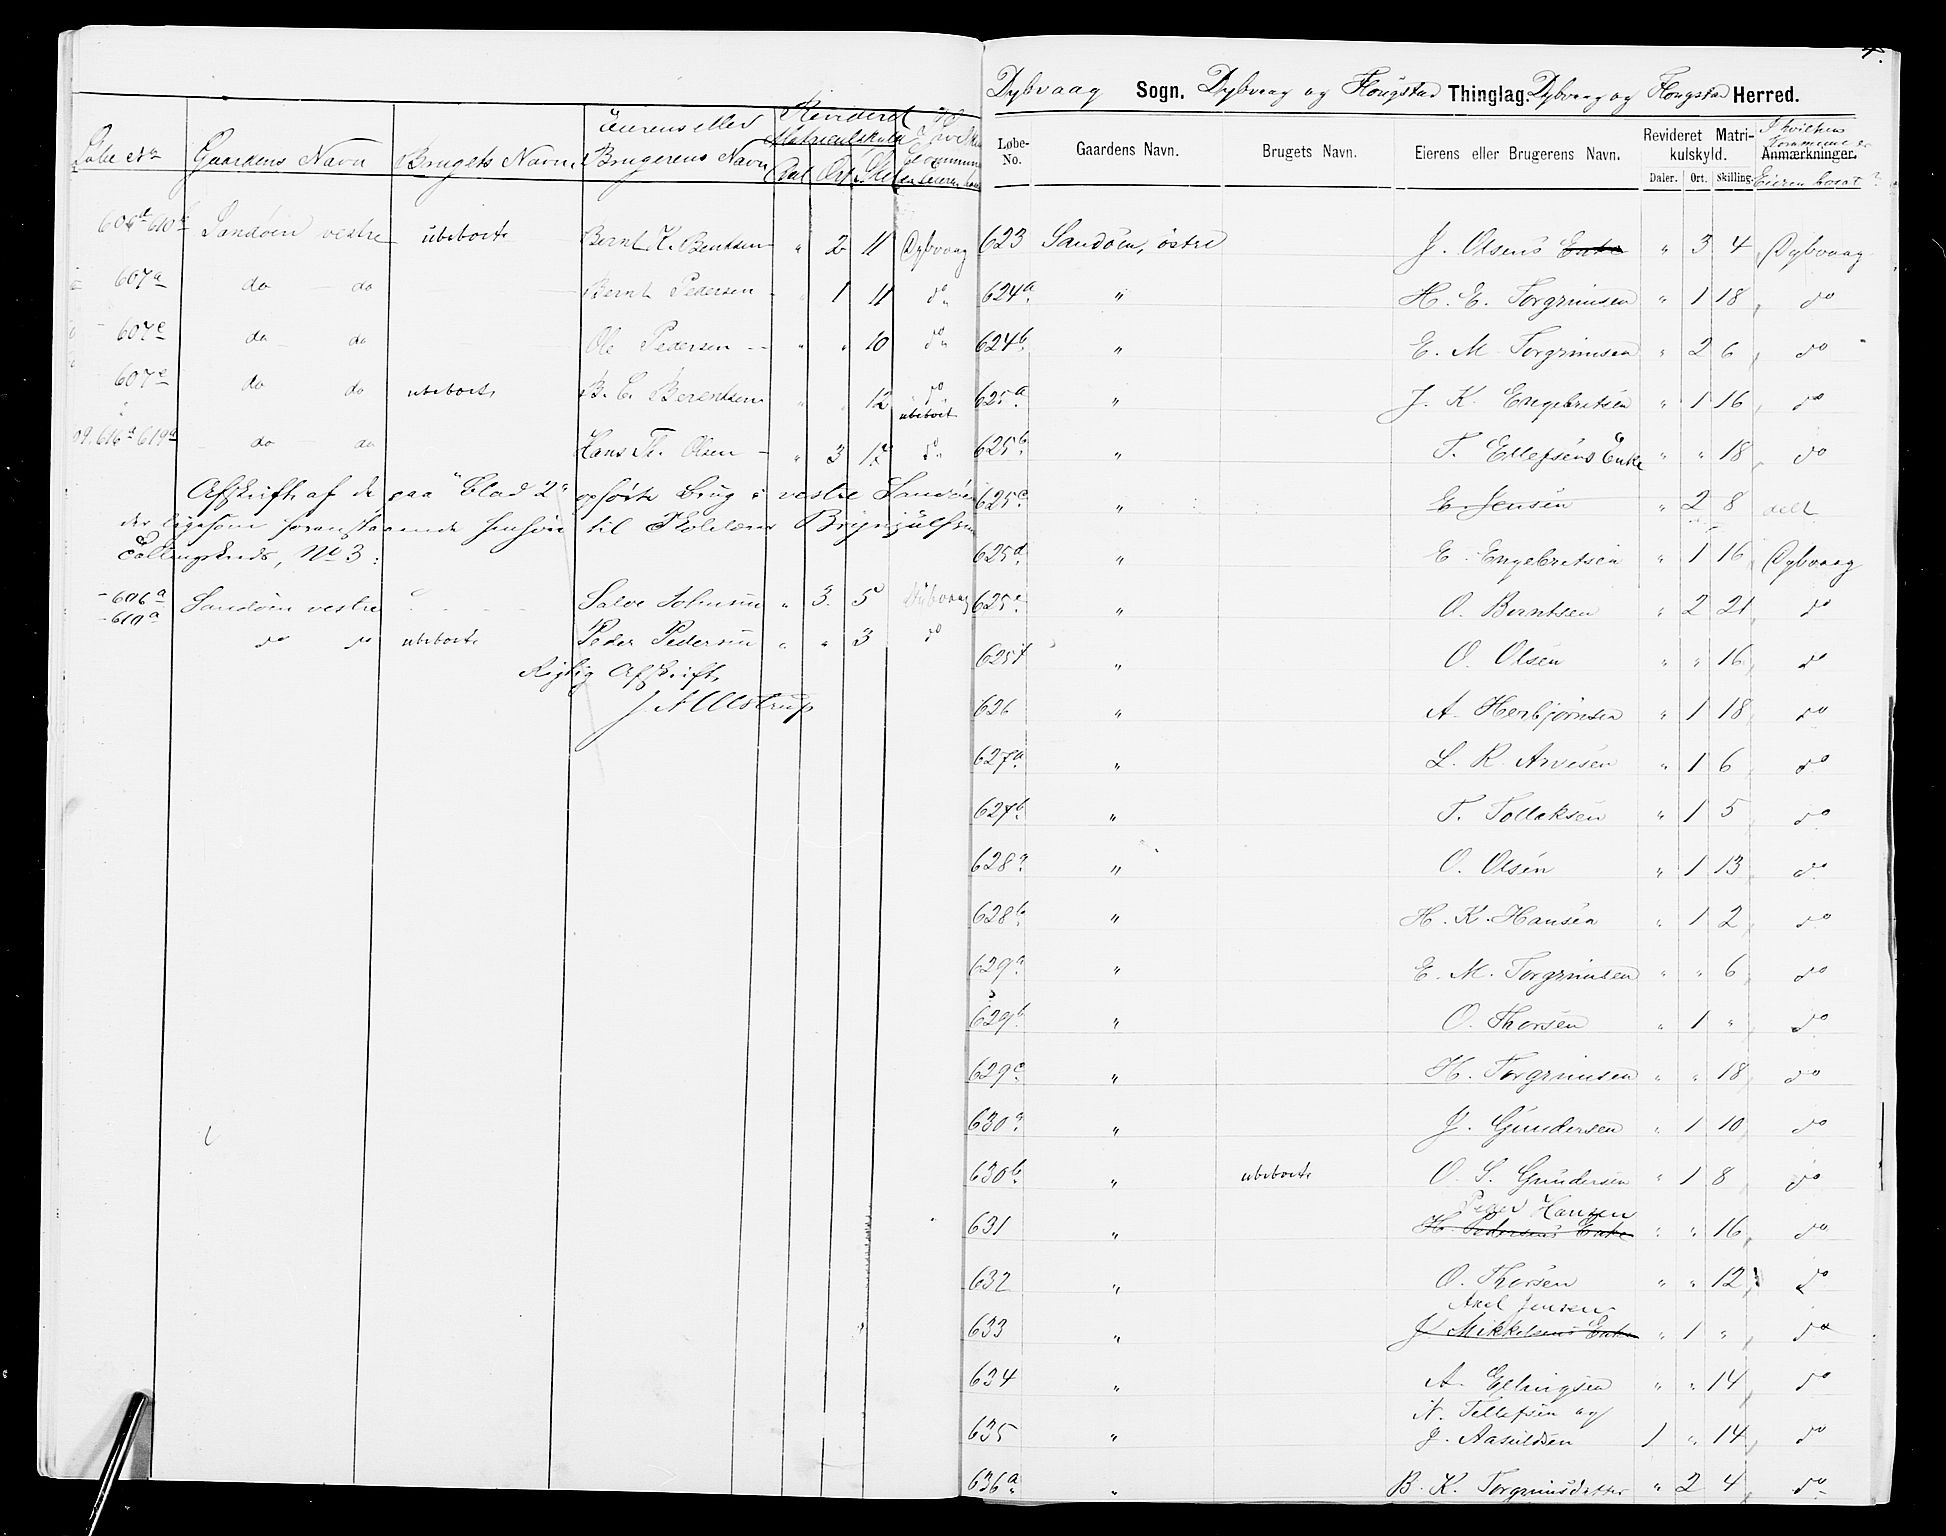 Løbe No Gaardens Navn Brugets Navn Eierens eller Brugerens Navn Revideret Matriculskyld Dal Ort Skl
606d 610 Sandøen vestre ubeboet Bernt K. Bentsen " 2 11 Dybvaag
607a do do Bernt Pedersen " 1 11 do
607c do do Ole Pedersen " " 10 do
607e do do ubeboet B. E. Berentsen " " 12 do ubeboet
616d 619d do do Hans Th. Olsen " 3 do
Afskrift af de paa "Blad 2" opførte Brug i vestre Sandøen
der ligesom foranstaaende henhøre til
Tællingskreds, No 3:
606a Sandøen vestre Salve " 3 5 Dybvaag
610a do do ubeboet Peder Pedersen " " 3 do
Rigtig Afskrift
J. A. Ulstrup
Dybvaag Sogn. Dybvaag og Flougstad Thinglag. Dybvaag og Flougstad Herred.
Løbe-No. Gaardens Navn. Brugets Navn. Eierens eller Brugerens Navn. Revideret Matrikulskyld. Daler. Ort. Skilling. Anmærkninger. I hvilken Kommune er Eieren bosat?
623 Sandøen, østre J. Olsens Enke " 3 4 Dybvaag
624a " H. E. Torgrimsen " 1 18 do
624b " E. M. Torgrimsen " 2 6 do
625a " J. K. Engebretsen " 1 16 do
625b " T. Ellefsens Enke " " 18 do
625c " E. Jensen " 2 8 delt
625d " E. Engebretsen " 1 16 Dybvaag
625e " O. Berntsen " 2 21 do
625f " O. Olsen " " 16 do
626 " A. Herbjørnsen " 1 18 do
627a " L. R. Arvesen " 1 6 do
627b " T. Tollaksen " 1 5 do
628a " O. Olsen " 1 13 do
628b " H. K. Hansen " 1 2 do
629a " E. M. Torgrimsen " " 6 do
629b " O. Thorsen " 1 " do
629c " H. Torgrimsen " " 18 do
630a " J. Gundersen " 1 10 do
630b " ubeboet O. S. Gundersen " 1 8 do
Peder Hansen
631 " H. Pedersens Enke " " 16 do
632 " O. Thorsen " " 12 do
Axel Jensen
633 " J. Mikkelsens Enke " 1 " do
634 " A. Ellingsen " " 14 do
N. Tellefsen og
635 " J. Aasuldsen 1 " 14 do
636a " B. K. Torgrimsdatter " 2 4 do